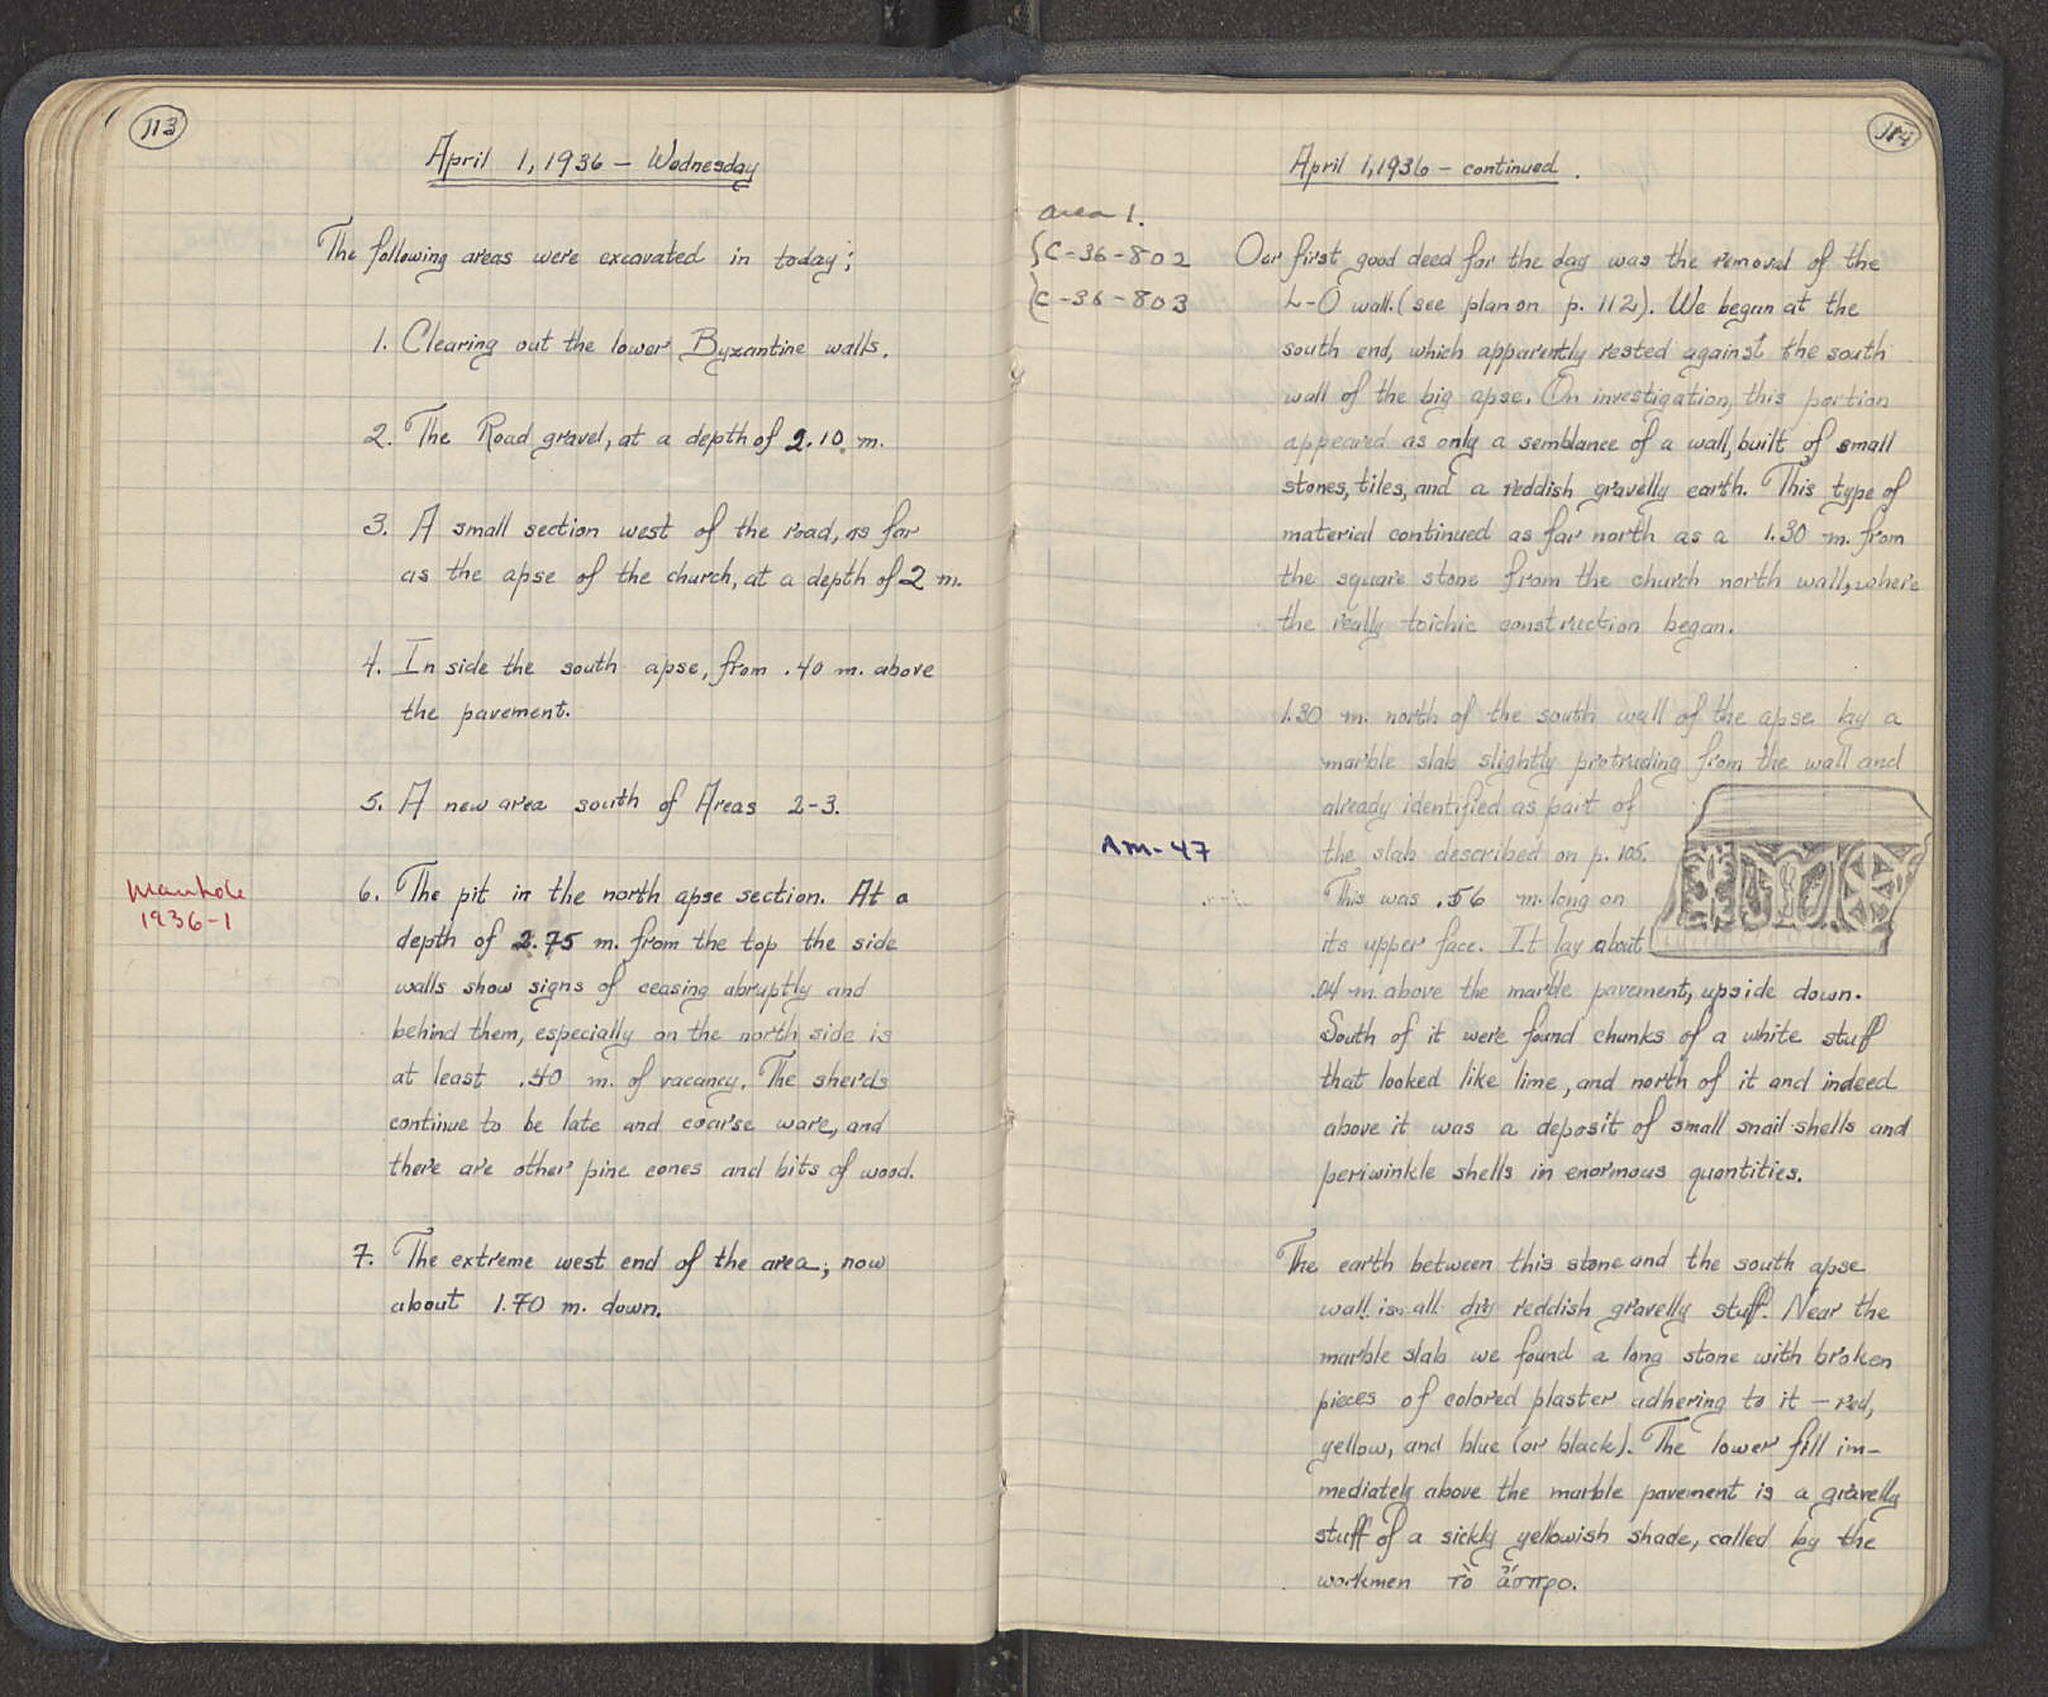 113
April 1, 1936 — Wednesday
The following areas were excavated in today:
1. Clearing out the lower Byzantine walls.
2. The Road gravel, at a depth of 2.10 m.
3. A small section west of the road, as far
as the apse of the church, at a depth of 2 m.
4. Inside the south apse, from .40 m. above
the pavement.
5. A new area south of Areas 2-3.
Manhole
1936-1
6. The pit in the north apse section. At a
depth of 2.75 m. from the top the side
walls show signs of ceasing abruptly and
behind them, especially on the north side is
at least .40 m. of vacancy. The sherds
continue to be late and coarse ware, and
there are other pine cones and bits of wood.
7. The extreme west end of the area; now
about 1.70 m. down.
114
April 1, 1936 — continued.
area 1.
C-36-802
C-36-803
Our first good deed for the day was the removal of the
L-O wall. (see plan on p. 112). We began at the
south end, which apparently rested against the south
wall of the big apse. On investigation, this portion
appeared as only a semblance of a wall, built of small
stones, tiles, and a reddish gravelly earth. This type of
material continued as far north as a 1.30 m. from
the square stone from the church north wall, where
the really toichic construction began.
1.30 m. north of the south wall of the apse lay a
marble slab slightly protruding from the wall and
already identified as part of
AM-47
the slab described on p. 105.
This was .56 m. long on
its upper face. It lay about
.04 m. above the marble pavement, upside down.
South of it were found chunks of a white stuff
that looked like lime, and north of it and indeed
above it was a deposit of small snail-shells and
periwinkle shells in enormous quantities.
The earth between this stone and the south apse
wall is all dry reddish gravelly stuff. Near the
marble slab we found a long stone with broken
pieces of colored plaster adhering to it — red,
yellow, and blue (or black). The lower fill im-
mediately above the marble pavement is a gravelly
stuff of a sickly yellowish shade, called by the
workmen τὸ ἄσπρο.